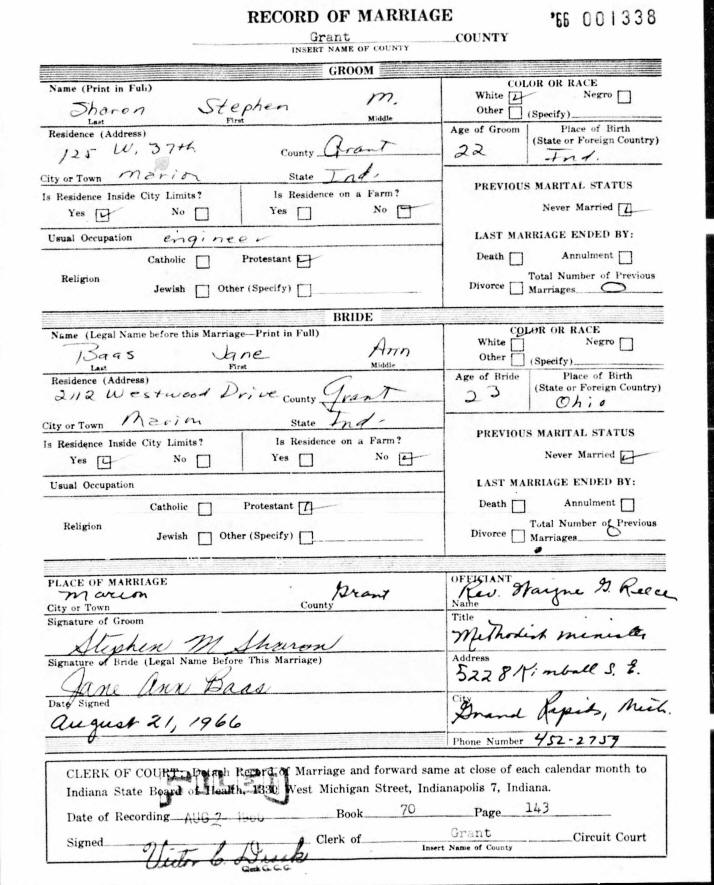 RECORD OF MARRIAGE
'66 001338
Grant COUNTY
INSERT NAME OF COUNTY
GROOM
Name (Print in Full)
Sharon Stephen M.
Last First Middle
COLOR OR RACE
White Negro
Other (Specify)
Residence (Address)
125 W. 37th County Grant
City or Town Marion State Ind.
Age of Groom
22
Place of Birth
(State or Foreign Country)
Ind.
Is Residence Inside City Limits?
Yes No
Is Residence on a Farm?
Yes No
PREVIOUS MARITAL STATUS
Never Married
Usual Occupation engineer
Religion
Catholic Protestant
Jewish Other (Specify)
LAST MARRIAGE ENDED BY:
Death Annulment
Divorce Total Number of Previous
Marriages 0
BRIDE
Name (Legal Name before this Marriage—Print in Full)
Baas Jane Ann
Last First Middle
COLOR OR RACE
White Negro
Other (Specify)
Residence (Address)
2112 Westwood Drive County Grant
City or Town Marion State Ind.
Age of Bride
23
Place of Birth
(State or Foreign Country)
Ohio
Is Residence Inside City Limits?
Yes No
Is Residence on a Farm?
Yes No
PREVIOUS MARITAL STATUS
Never Married
Usual Occupation
Religion
Catholic Protestant
Jewish Other (Specify)
LAST MARRIAGE ENDED BY:
Death Annulment
Divorce Total Number of Previous
Marriages 0
PLACE OF MARRIAGE
Marion Grant
City or Town County
Signature of Groom
Stephen M Sharon
Signature of Bride (Legal Name Before This Marriage)
Jane Ann Baas
Date Signed
August 21, 1966
OFFICIANT
Rev. Wayne G. Reece
Name
Title
Methodist minister
Address
5228 Kimball S. E.
City
Grand Rapids, Mich.
Phone Number 452-2759
CLERK OF COURT: Detach Record of Marriage and forward same at close of each calendar month to
Indiana State Board of Health, 1330 West Michigan Street, Indianapolis 7, Indiana.
FILED
Date of Recording AUG Book 70 Page 143
Signed Victor C. Clerk of Grant Circuit Court
Insert Name of County
Clerk G.C.C.